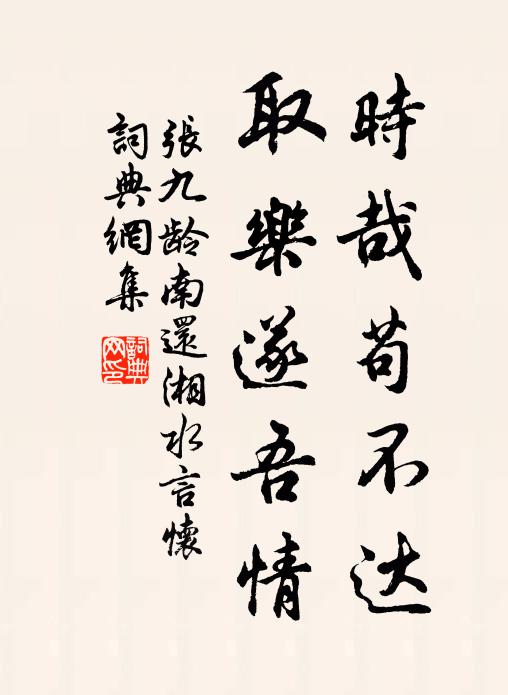 時哉苟不达
取樂遂吾情
張九龄南還湘水言懷
詞典網集
詞典
网印